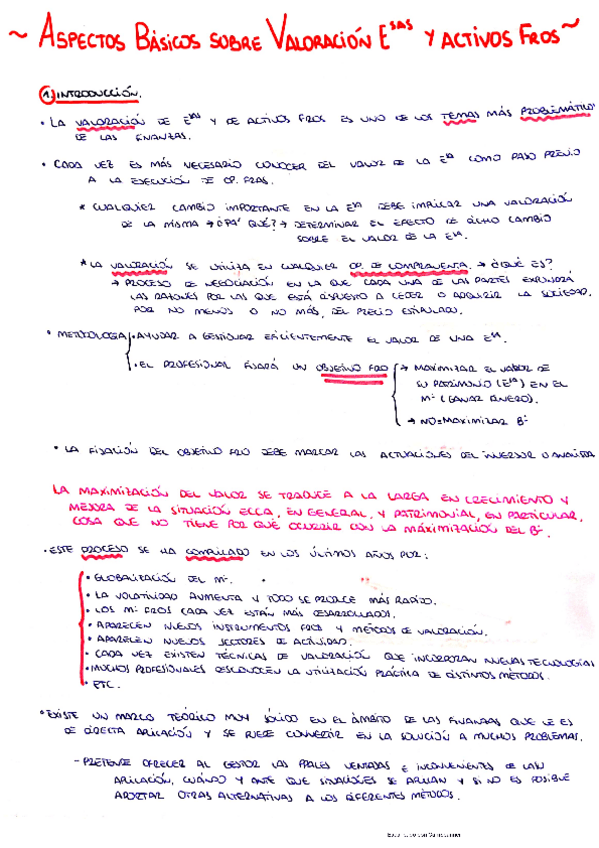 ~ ASPECTOS BÁSICOS SOBRE VALORACIÓN Esas Y ACTIVOS FROS ~
1. INTRODUCCIÓN.
• LA VALORACIÓN DE Esas Y DE ACTIVOS FROS ES UNO DE LOS TEMAS MÁS PROBLEMÁTICOS
DE LAS FINANZAS.
• CADA VEZ ES MÁS NECESARIO CONOCER DEL VALOR DE LA Esa COMO PASO PREVIO
A LA EJECUCIÓN DE OP. FRAS.
* CUALQUIER CAMBIO IMPORTANTE EN LA Esa DEBE IMPLICAR UNA VALORACIÓN
DE LA MISMA → ¿PA' QUÉ? → DETERMINAR EL EFECTO DE DICHO CAMBIO
SOBRE EL VALOR DE LA Esa.
* LA VALORACIÓN SE UTILIZA EN CUALQUIER OP. DE COMPRAVENTA. → ¿QUÉ ES?
→ PROCESO DE NEGOCIACIÓN EN LA QUE CADA UNA DE LAS PARTES EXPONDRÁ
LAS RAZONES POR LAS QUE ESTÁ DISPUESTO A CEDER O ADQUIRIR LA SOCIEDAD,
POR NO MENOS O NO MÁS, DEL PRECIO ESTIPULADO.
• METODOLOGÍA • AYUDAR A GESTIONAR EFICIENTEMENTE EL VALOR DE UNA Esa.
• EL PROFESIONAL FIJARÁ UN OBJETIVO FRO → MAXIMIZAR EL VALOR DE
SU PATRIMONIO (Esa) EN EL
Mº (GANAR DINERO).
→ NO = MAXIMIZAR Bº
• LA FIJACIÓN DEL OBJETIVO FRO DEBE MARCAR LAS ACTUACIONES DEL INVERSOR O ANALISTA
LA MAXIMIZACIÓN DEL VALOR SE TRADUCE A LA LARGA EN CRECIMIENTO Y
MEJORA DE LA SITUACIÓN ECCA, EN GENERAL, Y PATRIMONIAL, EN PARTICULAR,
COSA QUE NO TIENE POR QUÉ OCURRIR CON LA MÁXIMIZACIÓN DEL Bº.
• ESTE PROCESO SE HA COMPLICADO EN LOS ÚLTIMOS AÑOS POR:
• GLOBALIZACIÓN DEL Mº.
• LA VOLATILIDAD AUMENTA Y TODO SE PRODUCE MÁS RÁPIDO.
• LOS Mº FROS CADA VEZ ESTÁN MÁS DESARROLLADOS.
• APARECEN NUEVOS INSTRUMENTOS FROS Y MÉTODOS DE VALORACIÓN.
• APARECEN NUEVOS SECTORES DE ACTIVIDAD.
• CADA VEZ EXISTEN TÉCNICAS DE VALORACIÓN QUE INCORPORAN NUEVAS TECNOLOGÍAS
• MUCHOS PROFESIONALES DESCONOCEN LA UTILIZACIÓN PRÁCTICA DE DISTINTOS MÉTODOS.
• ETC.
• EXISTE UN MARCO TEÓRICO MUY SÓLIDO EN EL ÁMBITO DE LAS FINANZAS QUE LE ES
DE DIRECTA APLICACIÓN Y SE PUEDE CONVERTIR EN LA SOLUCIÓN A MUCHOS PROBLEMAS.
- PRETENDE OFRECER AL GESTOR LAS PPALES VENTAJAS E INCONVENIENTES DE LA
APLICACIÓN, CUÁNDO Y ANTE QUE SITUACIONES SE APLICAN Y SI NO ES POSIBLE
APORTAR OTRAS ALTERNATIVAS A LOS DIFERENTES MÉTODOS.